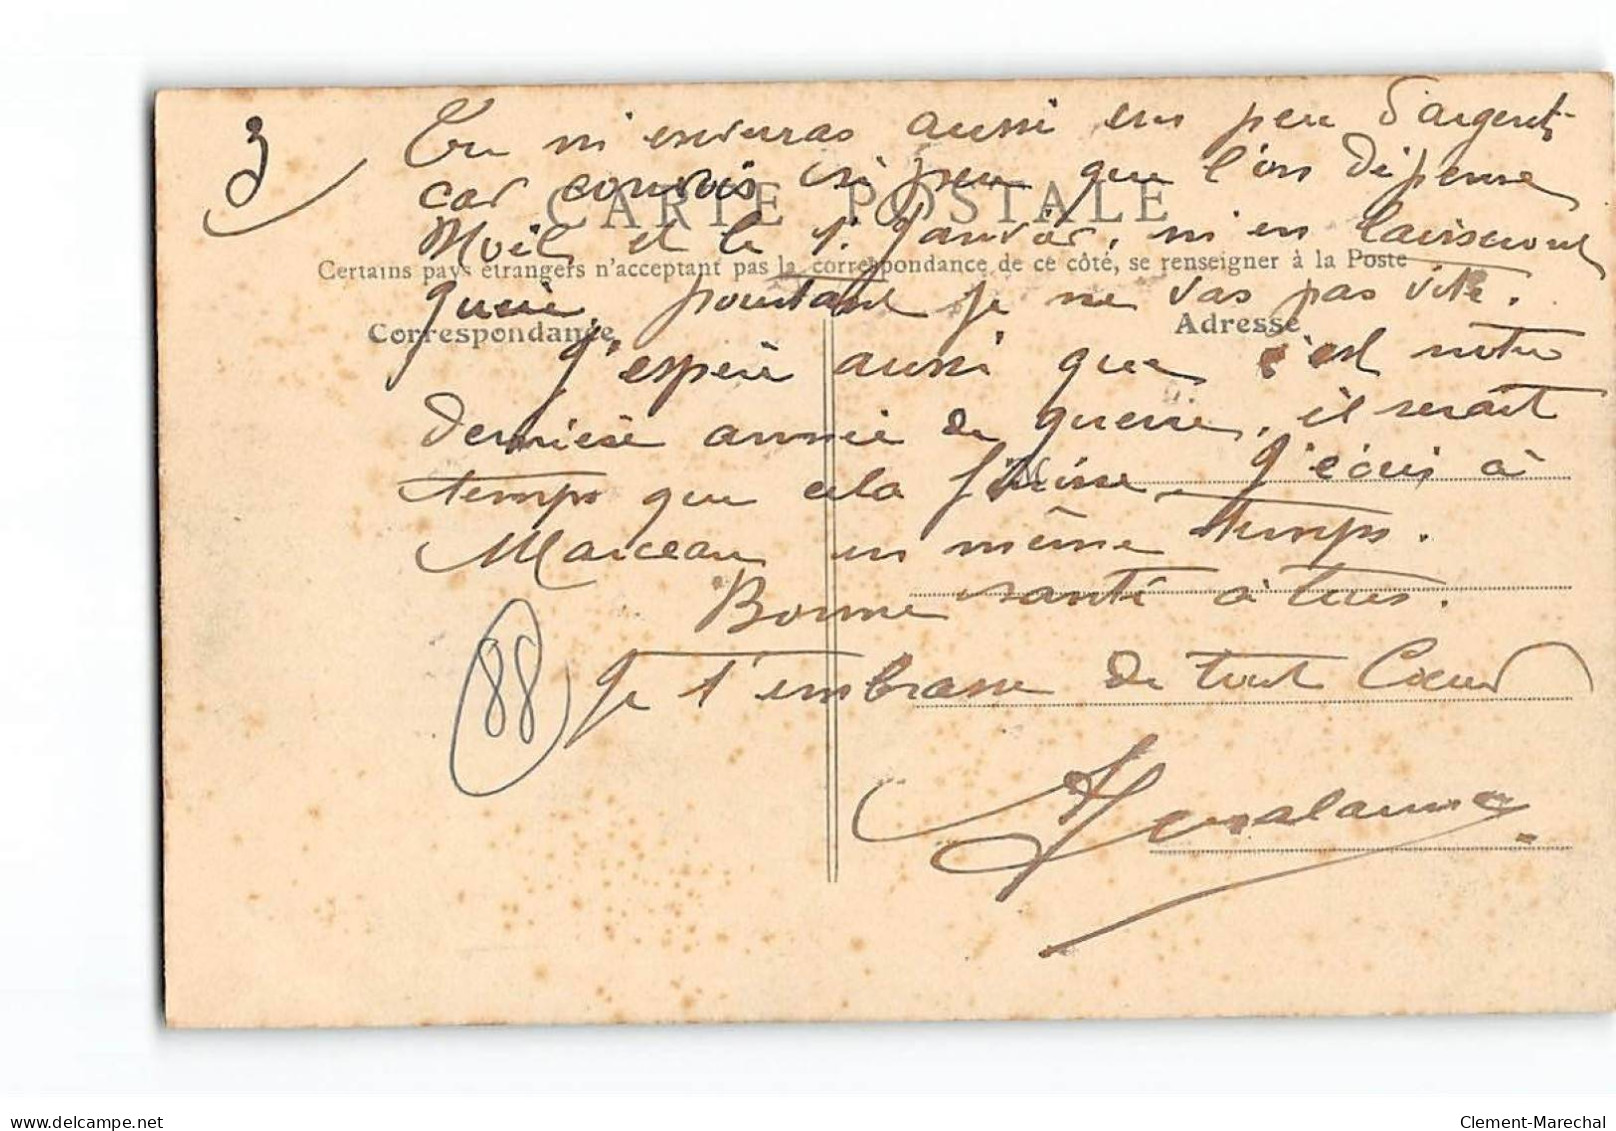 3
Tu m'enverras aussi un peu d'argent,
car si peu que l'on dépense
CARTE POSTALE
Noël et le 1er Janvier, m'en laisseront
Certains pays étrangers n'acceptant pas la correspondance de ce côté, se renseigner à la Poste
guère, pourtant je ne vas pas vite.
Correspondance
Adresse
J'espère aussi que c'est notre
dernière année de guerre, il serait
temps que cela finisse. J'écris à
Marceau en même temps.
Bonne santé à tous.
88
Je t'embrasse de tout Cœur
delcampe.net
Clement-Marechal